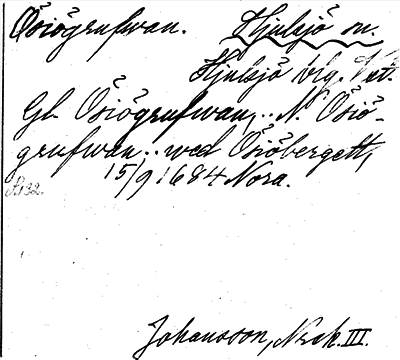 Ösiögrufwan. Hjulsjö sn.
Hjulsjö blg. Vat.
Gl. Ösiögrufwan, .. N. Ösiö-
grufwan .. wed Ösiöbergett,
15/9 1684 Nora.
Johansson, Norsk. III.